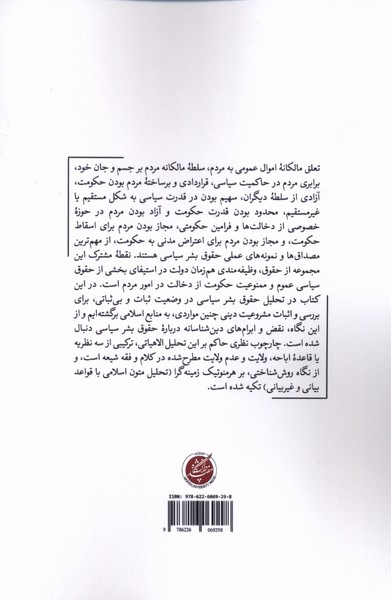 تعلق مالکانهٔ اموال عمومی به مردم، سلطهٔ مالکانه مردم بر جسم و جان خود،
برابری مردم در حاکمیت سیاسی، قراردادی و برساختهٔ مردم بودن حکومت،
آزادی از سلطهٔ دیگران، سهیم بودن در قدرت سیاسی به شکل مستقیم یا
غیرمستقیم، محدود بودن قدرت حکومت و آزاد بودن مردم در حوزهٔ
خصوصی از دخالت‌ها و فرامین حکومتی، مجاز بودن مردم برای اسقاط
حکومت، و مجاز بودن مردم برای اعتراض مدنی به حکومت، از مهم‌ترین
مصداق‌ها و نمونه‌های عملی حقوق بشر سیاسی هستند. نقطهٔ مشترک این
مجموعه از حقوق، وظیفه‌مندی هم‌زمان دولت در استیفای بخشی از حقوق
سیاسی عموم و ممنوعیت حکومت از دخالت در امور مردم است. در این
کتاب در تحلیل حقوق بشر سیاسی در وضعیت ثبات و بی‌ثباتی، برای
بررسی و اثبات مشروعیت دینی چنین مواردی، به منابع اسلامی برگشته‌ایم و از
این نگاه، نقض و ابرام‌های دین‌شناسانه دربارهٔ حقوق بشر سیاسی دنبال
شده است. چارچوب نظری حاکم بر این تحلیل الاهیاتی، ترکیبی از سه نظریه
یا قاعدهٔ اباحه، ولایت و عدم ولایت مطرح‌شده در کلام و فقه شیعه است، و
از نگاه روش‌شناختی، بر هرمنوتیک زمینه‌گرا (تحلیل متون اسلامی با قواعد
بیانی و غیربیانی) تکیه شده است.
ISBN: 978-622-6069-29-8
9 786226 069298